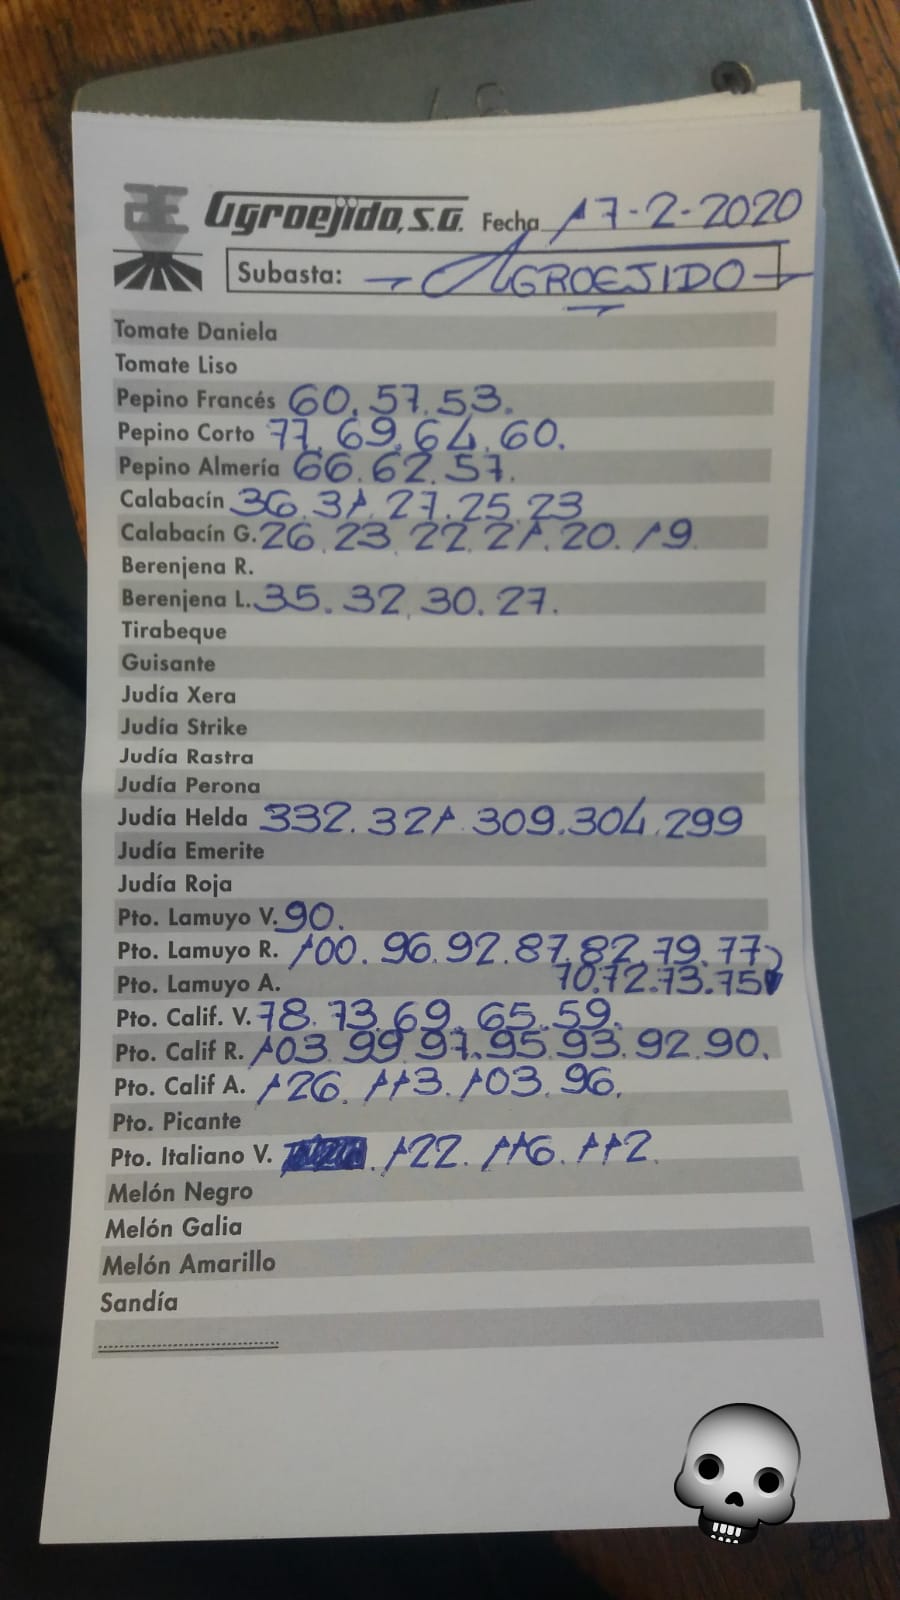 Agroejido, S.G. Fecha 17-2-2020
Subasta: AGROEJIDO
Tomate Daniela
Tomate Liso
Pepino Francés 60. 57. 53.
Pepino Corto 77. 69. 64. 60.
Pepino Almería 66. 62. 57.
Calabacín 36. 31. 27. 25. 23
Calabacín G. 26. 23. 22. 21. 20. 19
Berenjena R.
Berenjena L. 35. 32. 30. 27.
Tirabeque
Guisante
Judía Xera
Judía Strike
Judía Rastra
Judía Perona
Judía Helda 332. 321. 309. 304. 299
Judía Emerite
Judía Roja
Pto. Lamuyo V. 90.
Pto. Lamuyo R. 100. 96. 92. 87. 82. 79. 77
Pto. Lamuyo A. 70. 72. 73. 75
Pto. Calif. V. 78. 73. 69. 65. 59.
Pto. Calif R. 103 99 97. 95. 93. 92. 90.
Pto. Calif A. 126. 113. 103. 96.
Pto. Picante
Pto. Italiano V. 122. 116. 112.
Melón Negro
Melón Galia
Melón Amarillo
Sandía